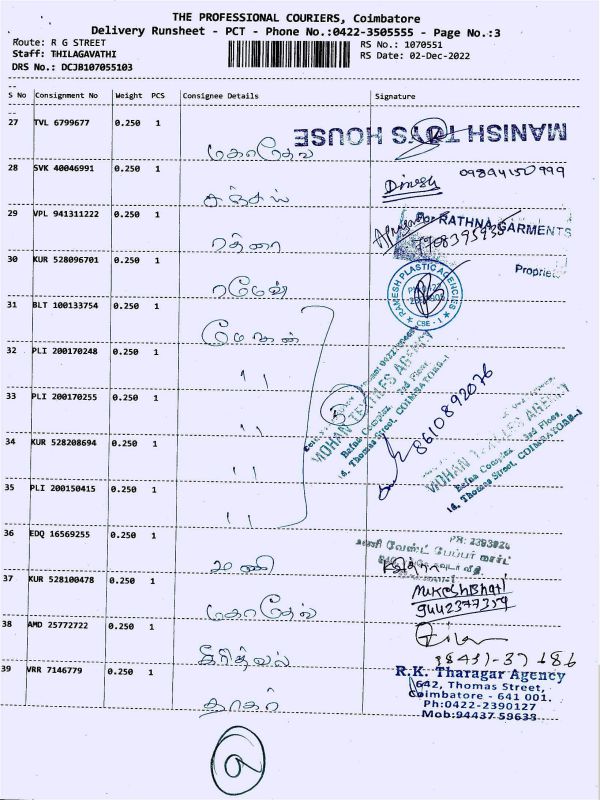 THE PROFESSIONAL COURIERS, Coimbatore
Delivery Runsheet - PCT - Phone No.:0422-3505555 - Page No.:3
Route: R G STREET
RS No.: 1070551
Staff: THILAGAVATHI
RS Date: 02-Dec-2022
DRS No.: DCJB107055103
S No Consignment No Weight PCS Consignee Details Signature
27 TVL 6799677 0.250 1
MANISH TOYS HOUSE
மகாதேவ்
28 SVK 40046991 0.250 1
Dinesh 09894150999
சஞ்சய்
29 VPL 941311222 0.250 1
For RATHNA GARMENTS
ரத்னா
30 KUR 528096701 0.250 1
Propriet
RAMESH PLASTIC AGENCIES
CBE - 1
ரமேஷ்
31 BLT 100133754 0.250 1
மோகன்
32 PLI 200170248 0.250 1
11
33 PLI 200170255 0.250 1
5
MOHAN TEXTILES AGENCY
Rafna Complex, 3rd Floor,
16, Thomas Street, COIMBATORE-1
8610892076
11
34 KUR 528208694 0.250 1
MOHAN TEXTILES AGENCY
Rafna Complex, 3rd Floor,
16, Thomas Street, COIMBATORE-1
11
35 PLI 200150415 0.250 1
11
36 EDQ 16569255 0.250 1
PH: 2393924
மணி வேஸ்ட் பேப்பர் மார்ட்
மணி
37 KUR 528100478 0.250 1
Mukesh Bhati
9442377359
மகாதேவ்
38 AMD 25772722 0.250 1
39 VRR 7146779 0.250 1
R.K. Tharagar Agency
642, Thomas Street,
Coimbatore - 641 001.
Ph:0422-2390127
Mob:94437 59638
தாகர்